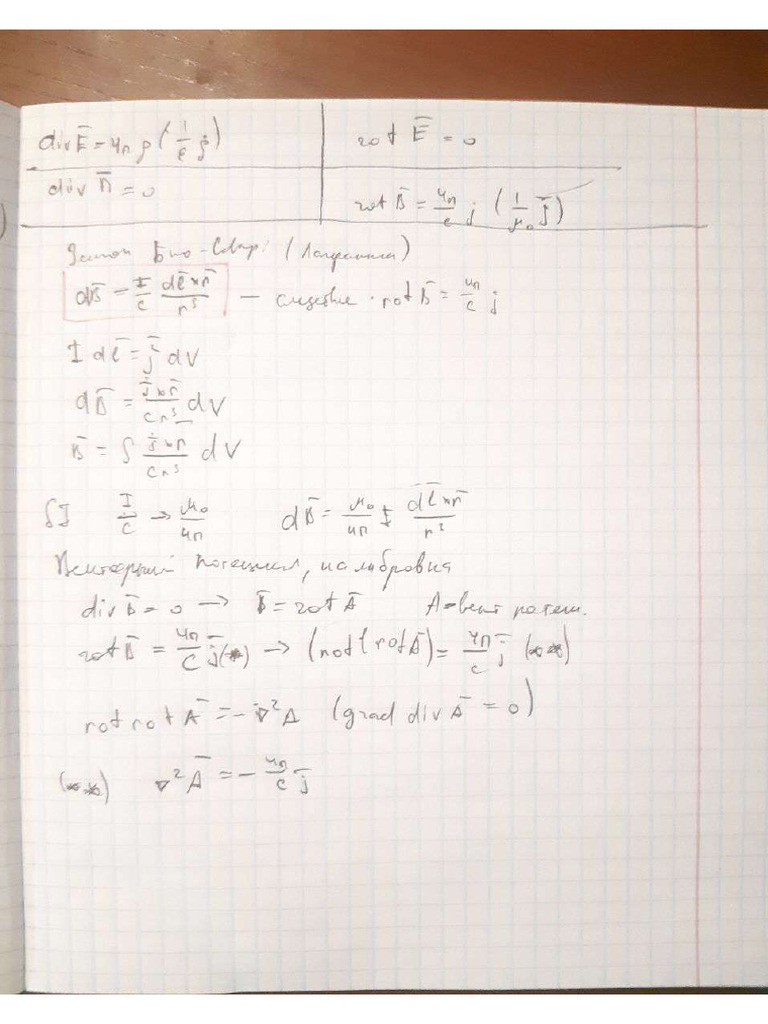 div E̅ = 4π ρ (1/ε ρ) rot E̅ = 0
div B̅ = 0 rot B̅ = 4π/c j (1/μ₀ j̅)
Закон Био-Савар. (Лапласа)
dB̅ = I/c dl̅ × r̅/r³ — следствие rot B̅ = 4π/c j
I dl̅ = j̅ dV
dB̅ = j̅ × r̅/cr³ dV
B̅ = ∫ j̅ × r̅/cr³ dV
SI I/c → μ₀/4π dB̅ = μ₀/4π I dl̅ × r̅/r³
Векторный потенциал, калибровка
div B̅ = 0 → B̅ = rot A̅ A - вект потен.
rot B̅ = 4π/c j̅ (*) → (rot (rot A̅) = 4π/c j̅ (**)
rot rot A̅ = -∇²A (grad div A̅ = 0)
(**) ∇²A̅ = -4π/c j̅